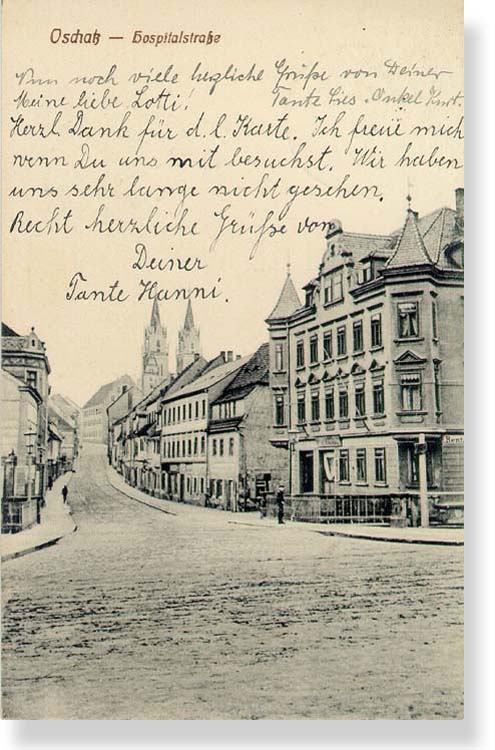 Oschatz — Hospitalstraße
Nun noch viele herzliche Grüße von Deiner
Tante Lies. Onkel Kurt.
Meine liebe Lotti!
Herzl. Dank für d. l. Karte. Ich freue mich
wenn Du uns mit besuchst. Wir haben
uns sehr lange nicht gesehen.
Recht herzliche Grüße von
Deiner
Tante Hanni.